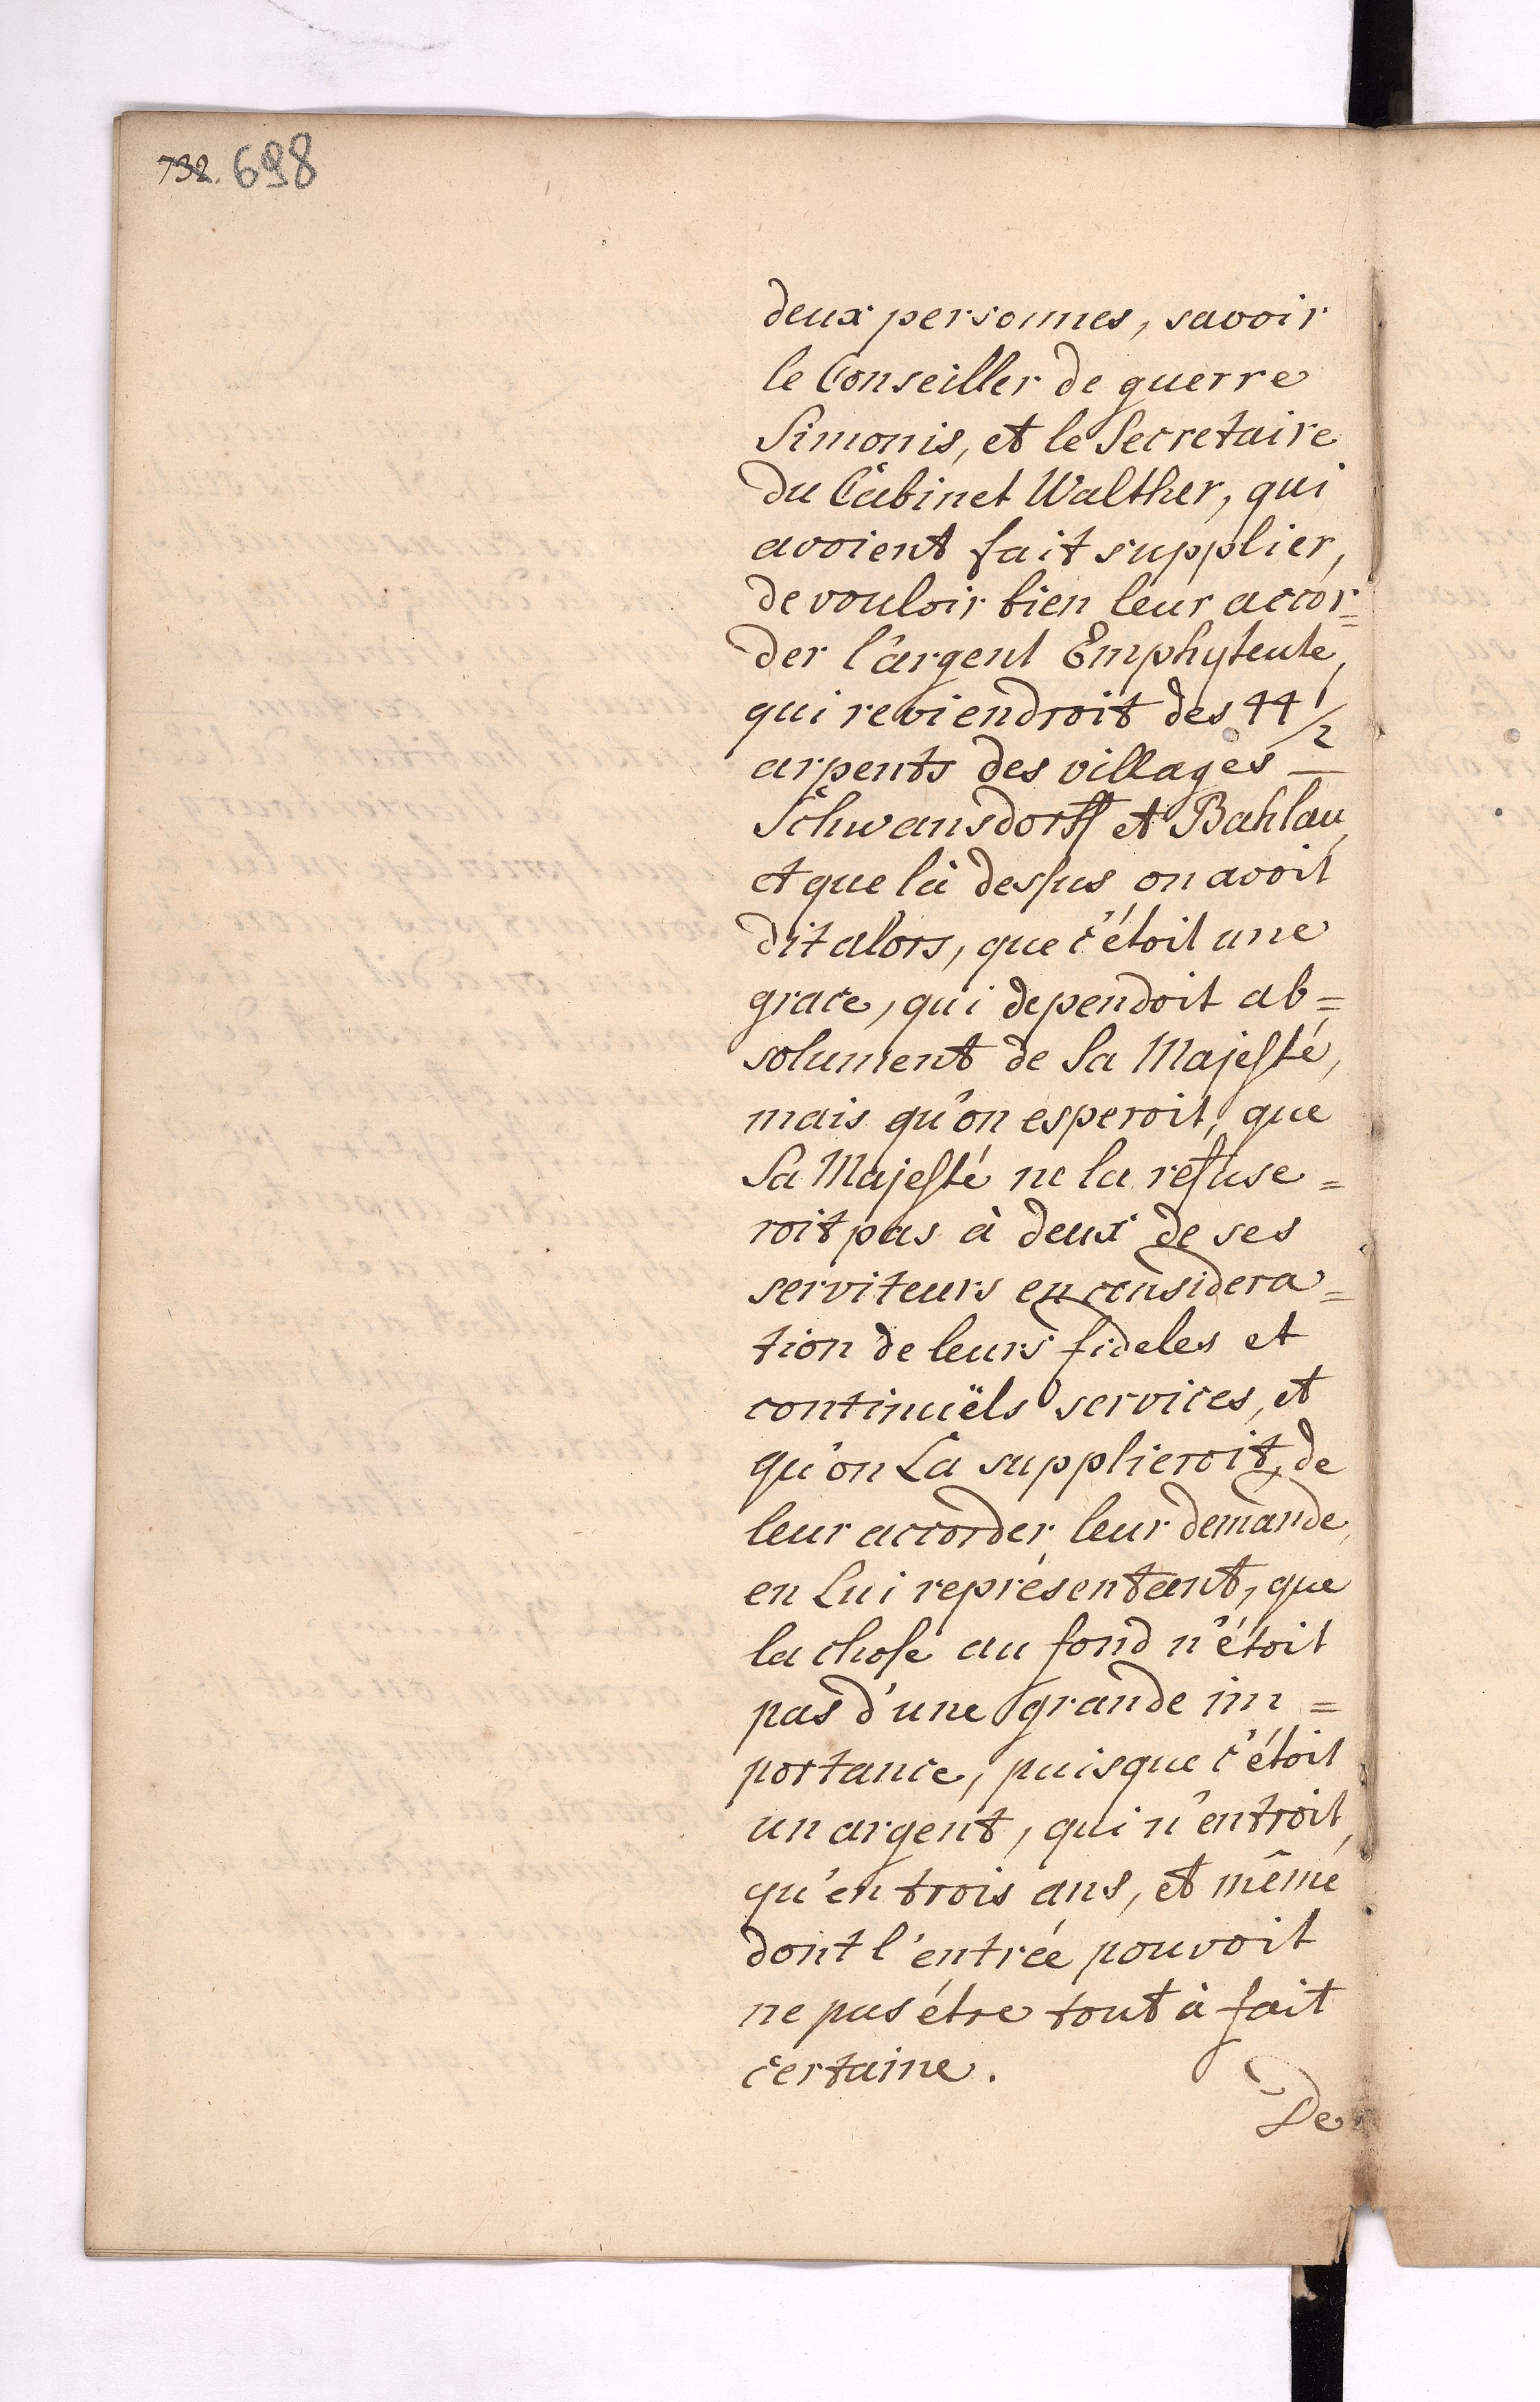 732. 698
deux personnes, savoir
le Conseiller de guerre
Simonis, et le Secretaire
du Cabinet Walther, qui
avoient fait supplier,
de vouloir bien leur accor=
der l'argent Emphyteute,
qui reviendroit des 44 1/2
arpents des villages —
Schwansdorff et Bahlau,
et que là dessus on avoit
dit alors, que c'étoit une
grace, qui dependoit ab=
solument de Sa Majesté,
mais qu'on esperoit, que
Sa Majesté ne la refuse=
roit pas à deux de ses
serviteurs en considera=
tion de leurs fideles et
continuëls services, et
qu'on La supplieroit, de
leur accorder leur demande,
en Lui représentant, que
la chose au fond n'étoit
pas d'une grande im=
portance, puisque c'étoit
un argent, qui n'entroit,
qu'en trois ans, et même
dont l'entrée pouvoit
ne pas étre tout à fait
certaine.
De